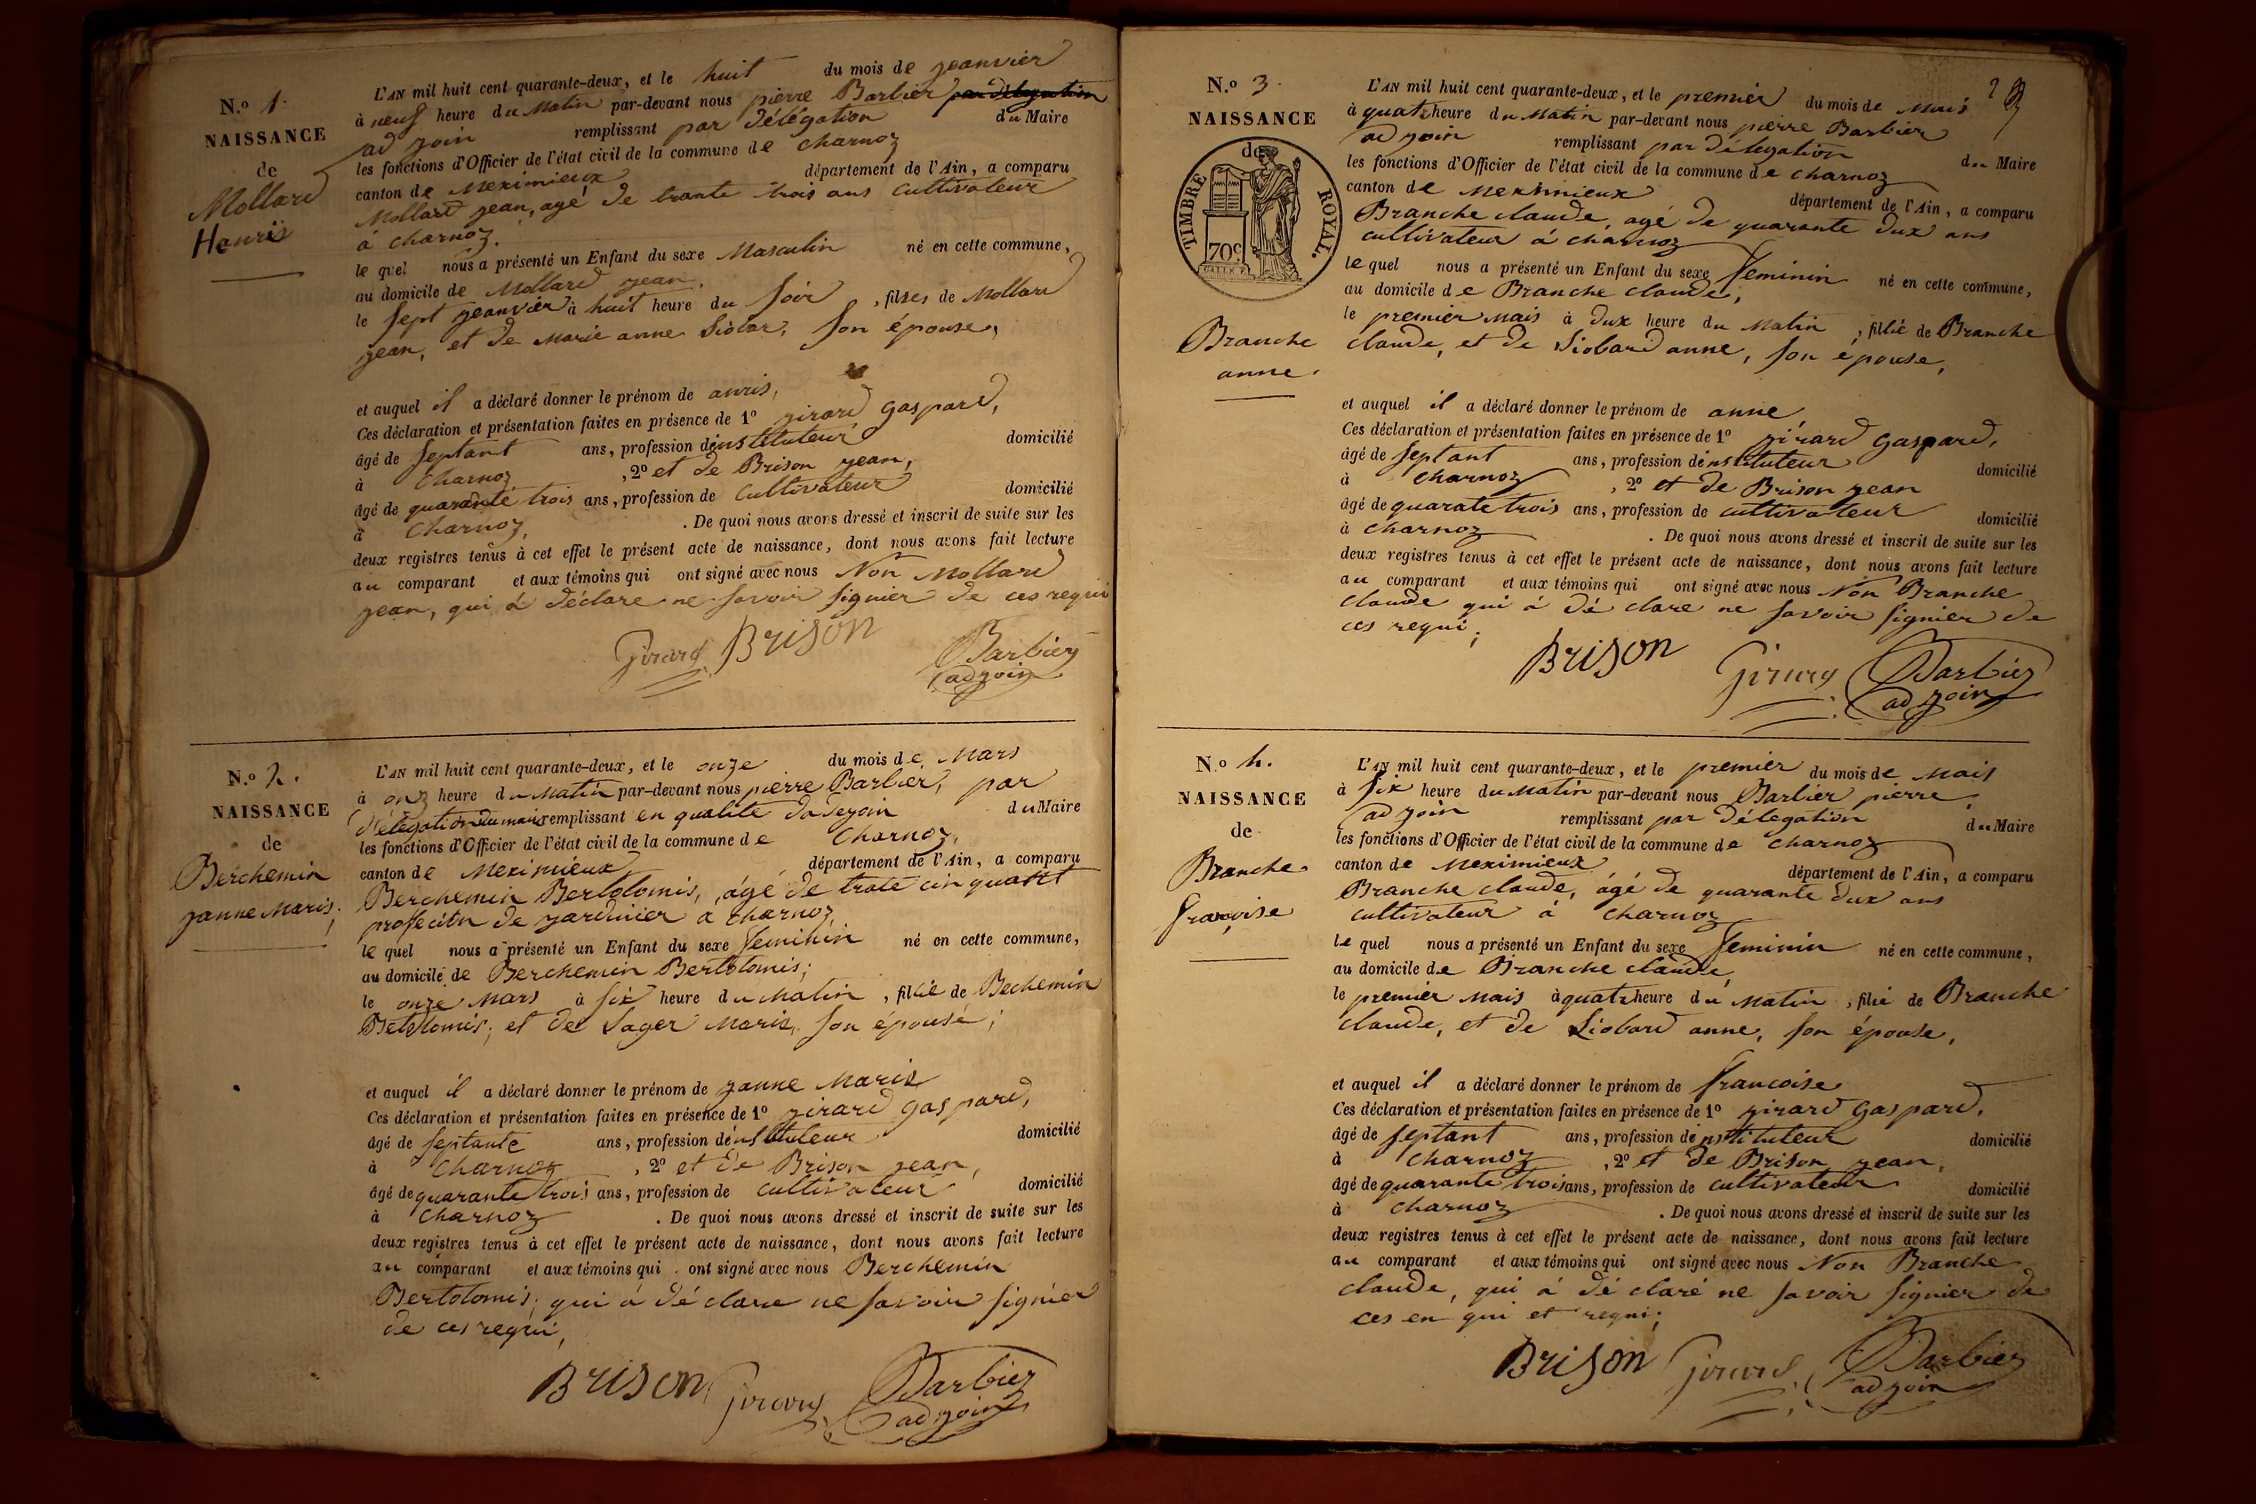 N.o 1.
NAISSANCE
de
Mollard
Henris
L'AN mil huit cent quarante-deux, et le huit du mois de jeanvier
à neuf heure du Matin par-devant nous pierre Barbier par délégation
adjoin remplissant par délégation du Maire
les fonctions d'Officier de l'état civil de la commune de charnoz
canton de Meximieux département de l'Ain, a comparu
Mollard jean, agé de trante trois ans cultivateur
á charnoz.
le quel nous a présenté un Enfant du sexe Masculin né en cette commune,
au domicile de Mollard jean,
le sept jeanvier à huit heure du soir, fils de Mollard
jean, et de Marie anne Siobar, son épouse,
et auquel il a déclaré donner le prénom de anris,
Ces déclaration et présentation faites en présence de 1º girard gaspard,
âgé de septant ans, profession de instituteur domicilié
à charnoz, 2º et de Brison jean,
âgé de quarante trois ans, profession de cultivateur domicilié
à charnoz. De quoi nous avons dressé et inscrit de suite sur les
deux registres tenus à cet effet le présent acte de naissance, dont nous avons fait lecture
au comparant et aux témoins qui ont signé avec nous Non Mollard
jean, qui á déclare ne savoir signier de ces requi
Girard BRISON Barbier
adjoin
N.o 2.
NAISSANCE
de
Berchemin
janne Maris,
L'AN mil huit cent quarante-deux, et le onze du mois de Mars
à onz heure du Matin par-devant nous pierre Barbier, par
délégation du maire remplissant en qualité dadejoin du Maire
les fonctions d'Officier de l'état civil de la commune de Charnoz,
canton de Meximieux département de l'Ain, a comparu
Berchemin Bertolomis, ágé de trate cin quatit
profecitn de jardinier a charnoz,
le quel nous a présenté un Enfant du sexe feminin né en cette commune,
au domicile de Berchemin Bertolomis;
le onze Mars à six heure du Matin, fille de Bechemin
Betolomis, et de Sager Maris, son épouse;
et auquel il a déclaré donner le prénom de janne Maris
Ces déclaration et présentation faites en présence de 1º girard gaspard,
âgé de septante ans, profession de instituteur domicilié
à charnoz, 2º et de Brison jean,
âgé de quarante trois ans, profession de cultivateur domicilié
à charnoz. De quoi nous avons dressé et inscrit de suite sur les
deux registres tenus à cet effet le présent acte de naissance, dont nous avons fait lecture
au comparant et aux témoins qui ont signé avec nous Berchemin
Bertolomis, qui á déclare ne savoir signier
de ces requi,
BRISON Girard Barbier
adjoin
N.o 3.
NAISSANCE
de
TIMBRE ROYAL.
70c
Branche
anne.
2
L'AN mil huit cent quarante-deux, et le premier du mois de Mais
à quatr heure du Matin par-devant nous pierre Barbier
adjoin remplissant par délégation du Maire
les fonctions d'Officier de l'état civil de la commune de charnoz
canton de Meximieux département de l'Ain, a comparu
Branche claude, agé de quarante dux ans
cultivateur á charnoz
le quel nous a présenté un Enfant du sexe feminin né en cette commune,
au domicile de Branche claude,
le premier Mais à dux heure du Matin, fillie de Branche
claude, et de Siobard anne, son épouse,
et auquel il a déclaré donner le prénom de anne
Ces déclaration et présentation faites en présence de 1º girard gaspard,
âgé de septant ans, profession de instituteur domicilié
à charnoz, 2º et de Brison jean
âgé de quarate trois ans, profession de cultivateur domicilié
à charnoz. De quoi nous avons dressé et inscrit de suite sur les
deux registres tenus à cet effet le présent acte de naissance, dont nous avons fait lecture
au comparant et aux témoins qui ont signé avec nous Non Branche
claude qui á dé clare ne savoir signier de
ces requi,
BRISON Girard Barbier
adjoin
N.o 4.
NAISSANCE
de
Branche
françoise
L'AN mil huit cent quarante-deux, et le premier du mois de Mais
à six heure du Matin par-devant nous Barbier pierre,
adjoin remplissant par délégation du Maire
les fonctions d'Officier de l'état civil de la commune de charnoz
canton de Meximieux département de l'Ain, a comparu
Branche claude, ágé de quarante dux ans
cultivateur á charnoz
le quel nous a présenté un Enfant du sexe feminin né en cette commune,
au domicile de Branche claude,
le premier Mais à quatr heure du Matin, filie de Branche
claude, et de Liobard anne, son épouse,
et auquel il a déclaré donner le prénom de francoise
Ces déclaration et présentation faites en présence de 1º girard gaspard,
âgé de septant ans, profession de instituteur domicilié
à charnoz, 2º et de Brison jean,
âgé de quarante trois ans, profession de cultivateur domicilié
à charnoz. De quoi nous avons dressé et inscrit de suite sur les
deux registres tenus à cet effet le présent acte de naissance, dont nous avons fait lecture
au comparant et aux témoins qui ont signé avec nous Non Branche
claude, qui á dé claré ne savoir signier de
ces en qui et requi;
BRISON Girard Barbier
adjoin